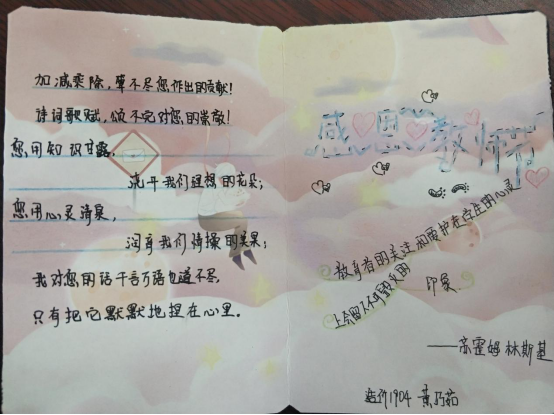 加减乘除，算不尽您作出的贡献！
诗词歌赋，颂不完对您的崇敬！
您用知识甘露，
浇开我们理想的花朵；
您用心灵清泉，
润育我们情操的美果；
我对您的话千言万语也道不尽，
只有把它默默地捏在心里。
感恩教师节
教育者的关注和爱护在学生的心灵
上会留下不可毁灭的
印象
——苏霍姆林斯基
造价1904 黄乃茹